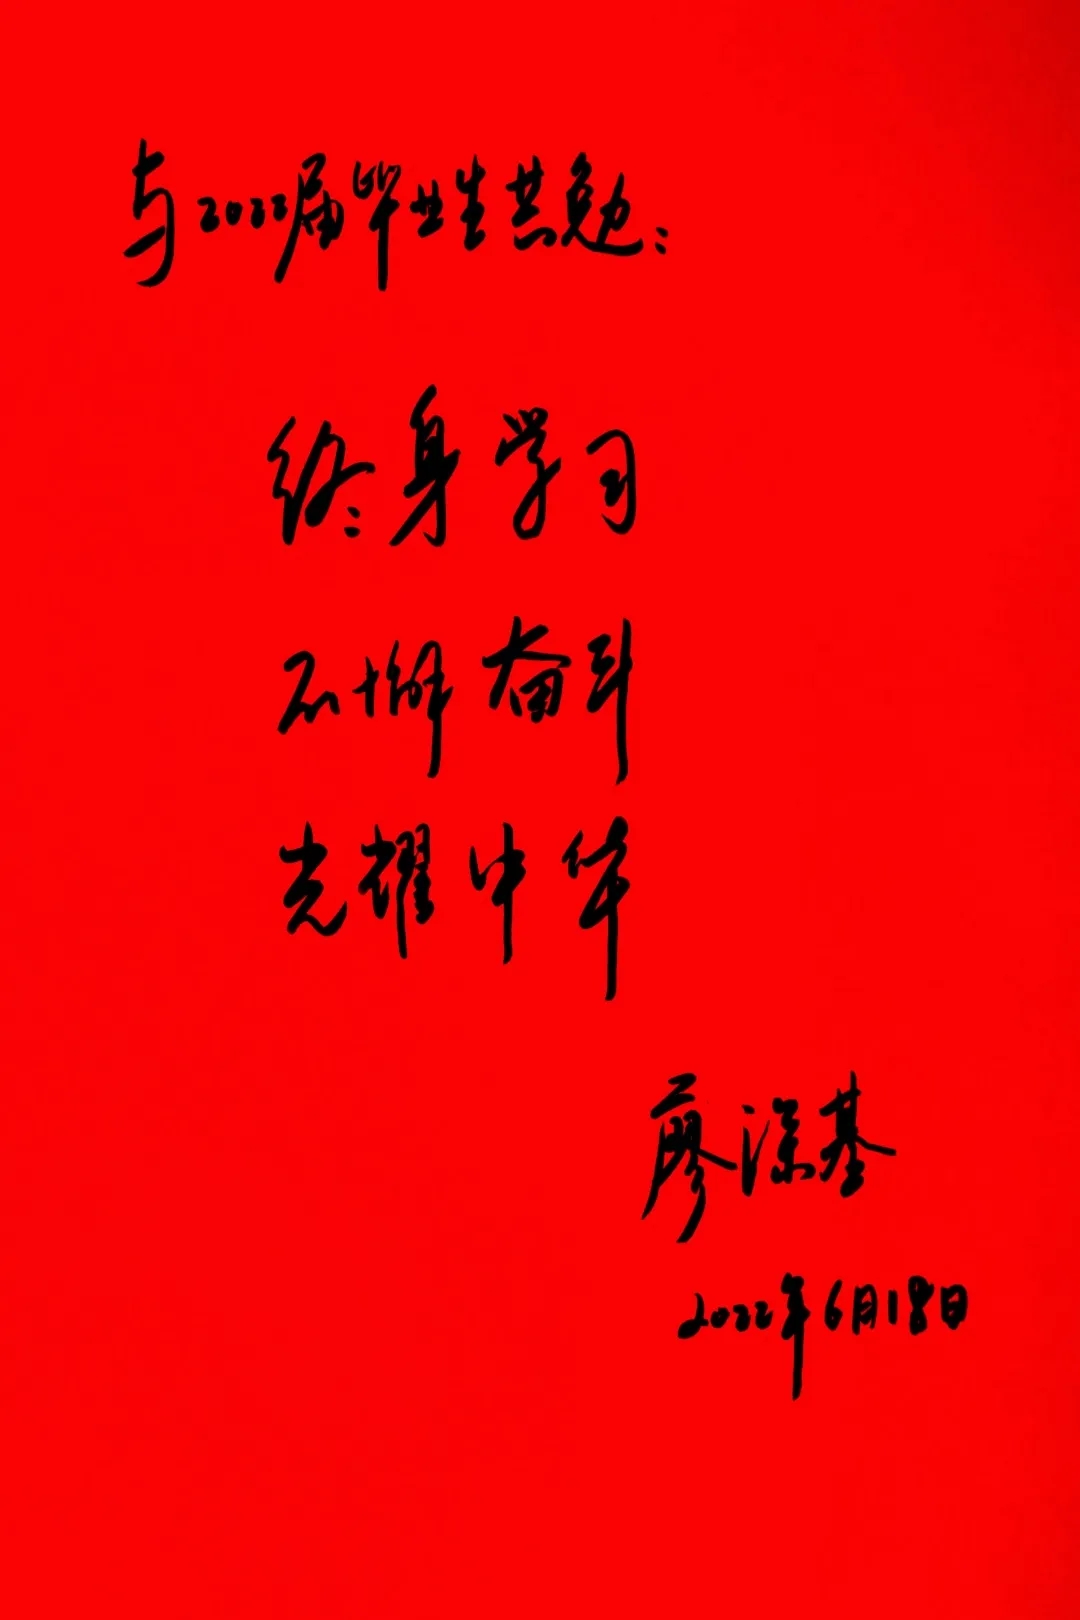 与2022届毕业生共勉：
终身学习
不懈奋斗
光耀中华
廖深基
2022年6月18日